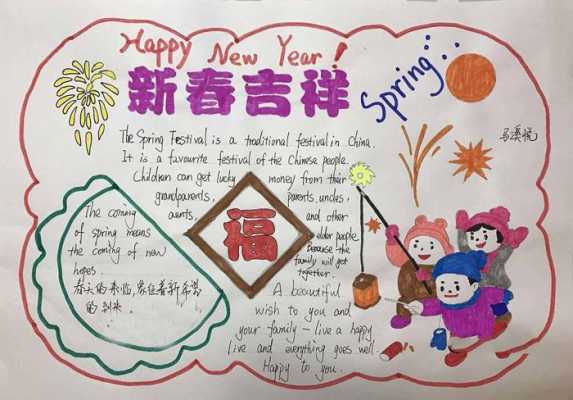 Happy New Year!
新春吉祥
Spring
The Spring Festival is a traditional festival in China.
It is a favourite festival of the Chinese people.
Children can get lucky money from their
grandparents, parents, uncles,
aunts, and other
elder people
Because the
family will get
together.
福
The coming
of spring means
the coming of new
hopes
春天的来临,象征着新希望
的到来.
A beautiful
wish to you and
your family - live a happy
live and everything goes well
Happy to you.